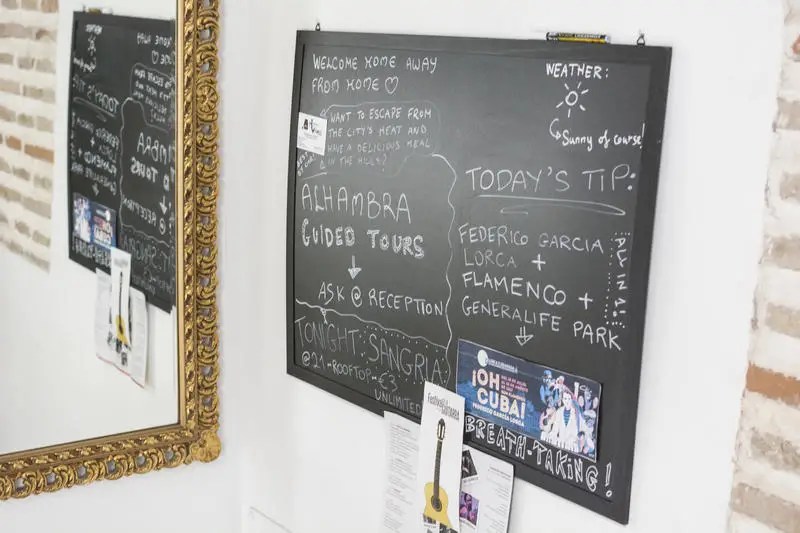 WELCOME HOME AWAY
FROM HOME ♡
WANT TO ESCAPE FROM
THE CITY'S HEAT AND
HAVE A DELICIOUS MEAL
IN THE HILLS?
ALHAMBRA
GUIDED TOURS
ASK @ RECEPTION
TONIGHT: SANGRIA
@21-ROOFTOP-€3
UNLIMITED
WEATHER:
Sunny of course!
TODAY'S TIP:
FEDERICO GARCIA
LORCA +
FLAMENCO +
GENERALIFE PARK
ALL IN 1!
¡OH
CUBA!
FEDERICO GARCÍA LORCA
BREATH-TAKING!
Festival
GUITARRA